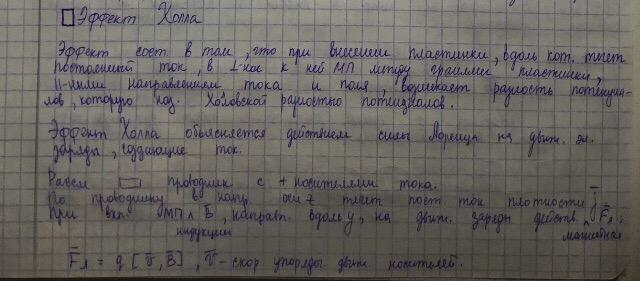 Эффект Холла
Эффект сост. в том, что при внесении пластинки, вдоль кот. течет
постоянный ток, в ⊥-ное к ней МП между гранями пластинки,
||-ными направлением тока и поля, возникает разность потенциа-
лов, которую наз. Холловской разностью потенциалов.
Эффект Холла объясняется действием силы Лоренца на движ. эл.
заряды, создающие ток.
Рассм ▭ проводник с + носителями тока.
По проводнику в напр. оси z течет пост ток плотности j̄
При вкл. МП с B̄, направл. вдоль y, на движ. заряды действ. F̄л:
индукции магнитная
F̄л = q [v̄, B̄], v̄ - скор упорядоч. движ. носителей.